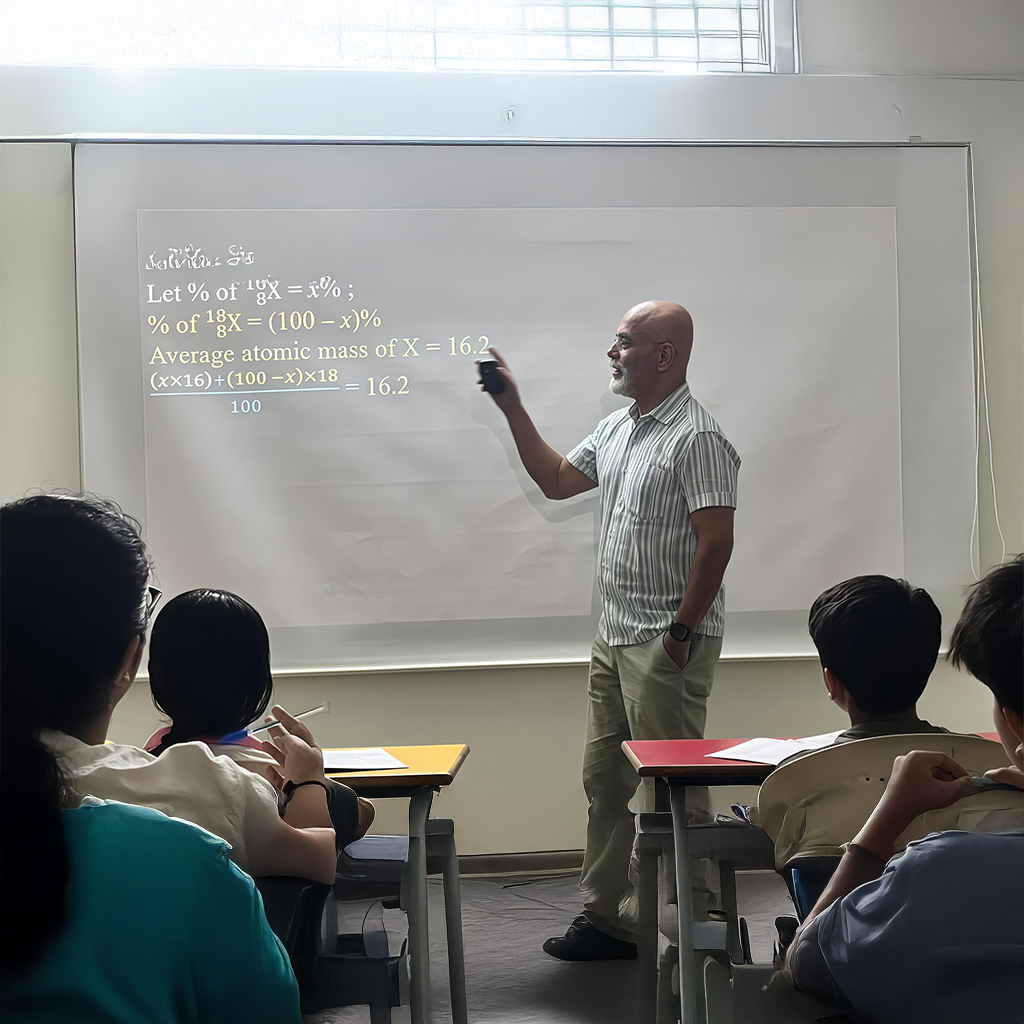 Let % of ¹⁶₈X = x% ;
% of ¹⁸₈X = (100 – x)%
Average atomic mass of X = 16.2
(x×16)+(100 –x)×18 = 16.2
100